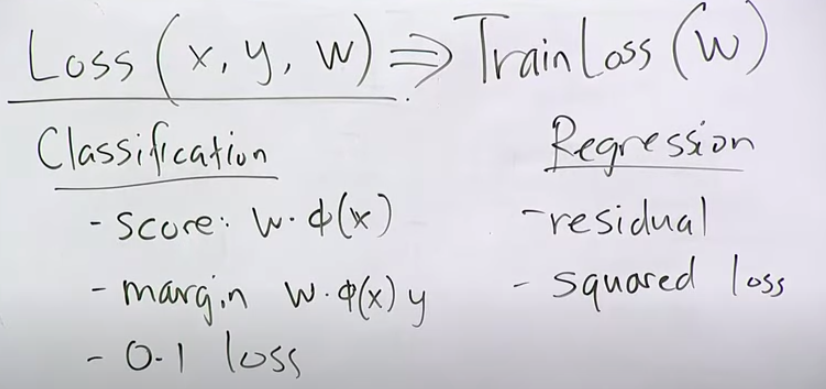 Loss (x, y, w) ⇒ TrainLoss (w)
Classification
- score: w·φ(x)
- margin w·φ(x) y
- 0-1 loss
Regression
- residual
- squared loss